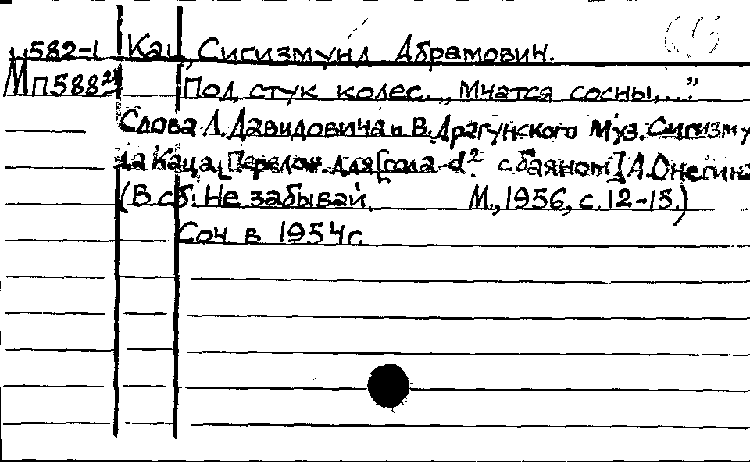 582-1 Кац, Сигизмунд Абрамович.
МП588 Под стук колес. "Мчатся сосны,..."
Слова Л. Давидовича и В. Драгунского Муз. Сигизму
да Каца, [Перелож. для [сола-d² с баяном] А. Онегина
(В сб: Не забывай. М., 1956, с. 12-15.)
Соч в 1954г.